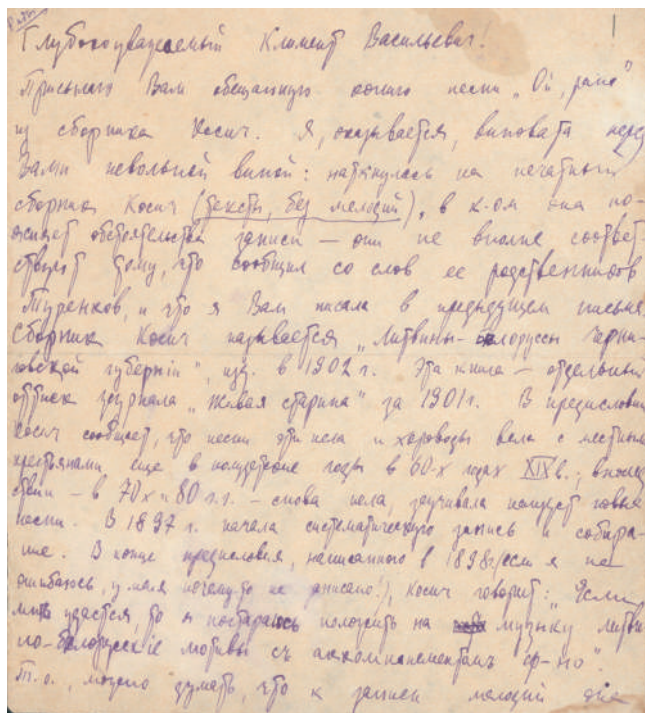 Глубокоуважаемый Климент Васильевич!
Присылаю Вам обещанную копию песни „Ой, рано"
из сборника Косич. Я, оказывается, виновата перед
Вами невольной виной: наткнулась на печатный
сборник Косич (тексты, без мелодий), в к-ом она по-
ясняет обстоятельства записи — они не вполне соответ-
ствуют тому, что сообщил со слов ее родственников
Туренков, и что я Вам писала в предыдущем письме
Сборник Косич называется „Литвины-белоруссы Черни-
говской губернiи", изд. в 1902 г. Эта книга — отдельный
оттиск журнала „Живая старина" за 1901 г. В предисловии
Косич сообщает, что песни эти пела и хороводы вела с местными
крестьянами еще в полудетские годы в 60-х годах XIX в.; впослед
ствии — в 70х и 80 г.г. — снова пела, заучивала новые
песни. В 1897 г. начала систематическую запись и собира-
ние. В конце предисловия, написанного в 1898 г (если я не
ошибаюсь, у меня почему-то не записано!), Косич говорит: „Если
мнѣ удастся, то я постараюсь положить на музыку литви
но-белорусскiе мотивы съ аккомпанементомъ ф-но".
Т.о., можно думать, что к записи мелодий она